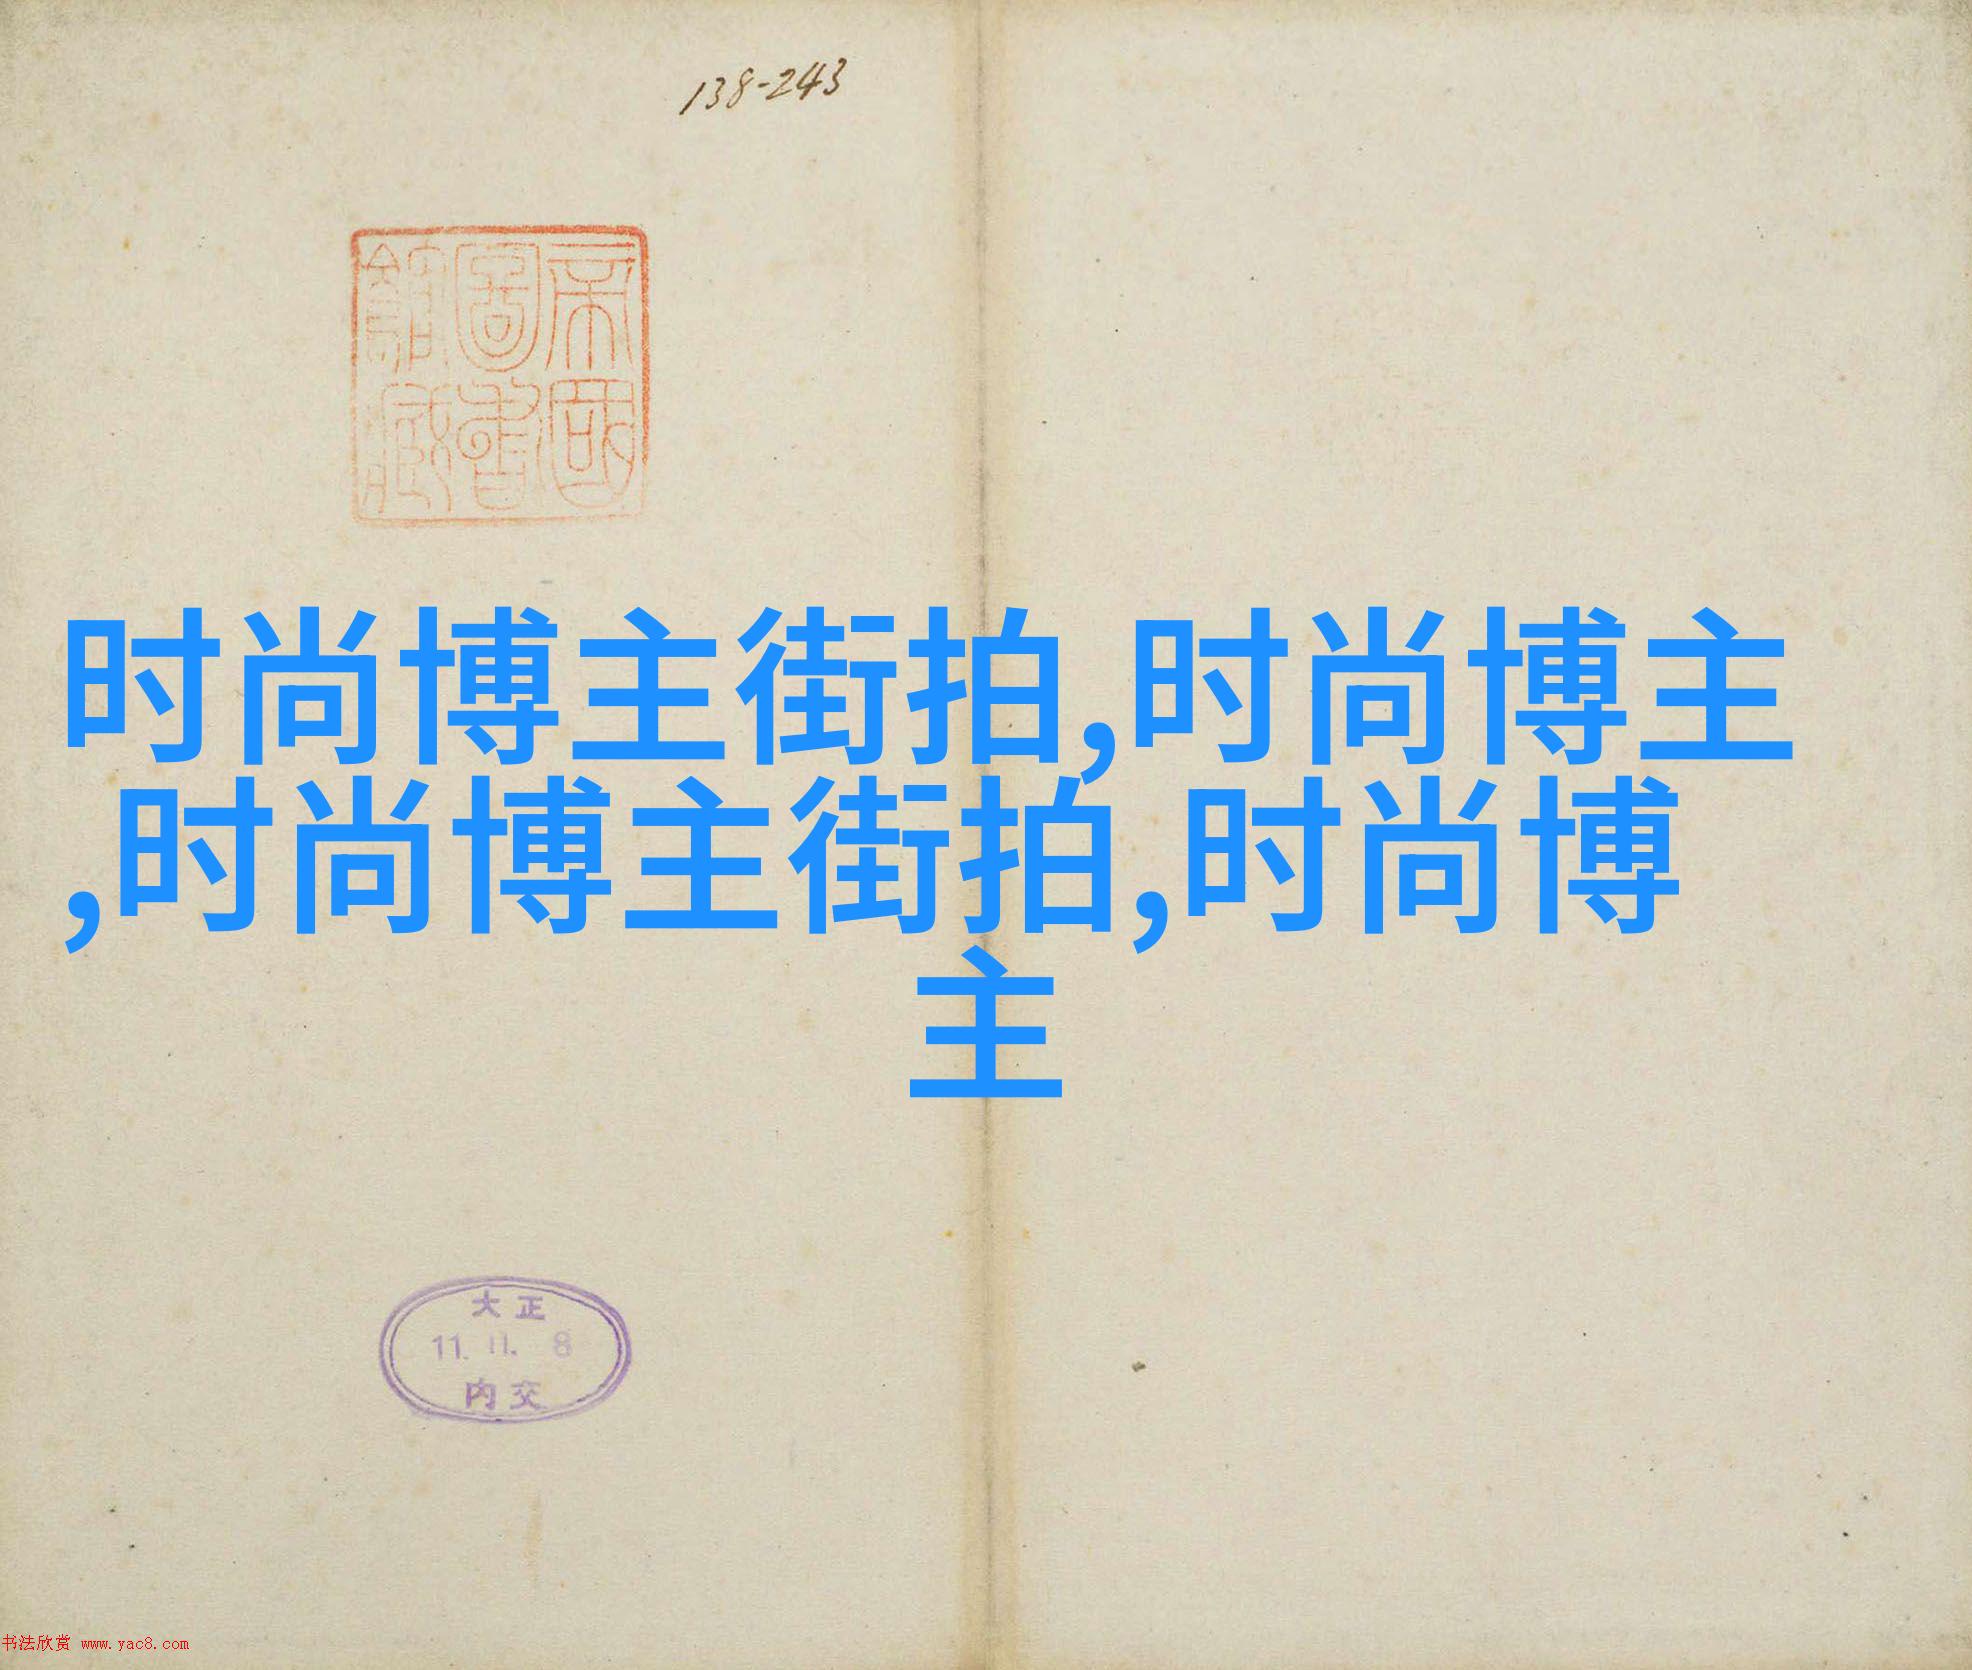 138-243
帝國
圖書
館藏
时尚博主街拍,时尚博主
,时尚博主街拍,时尚博
主
大正
11.11.8
内交
书法欣赏 www.yac8.com